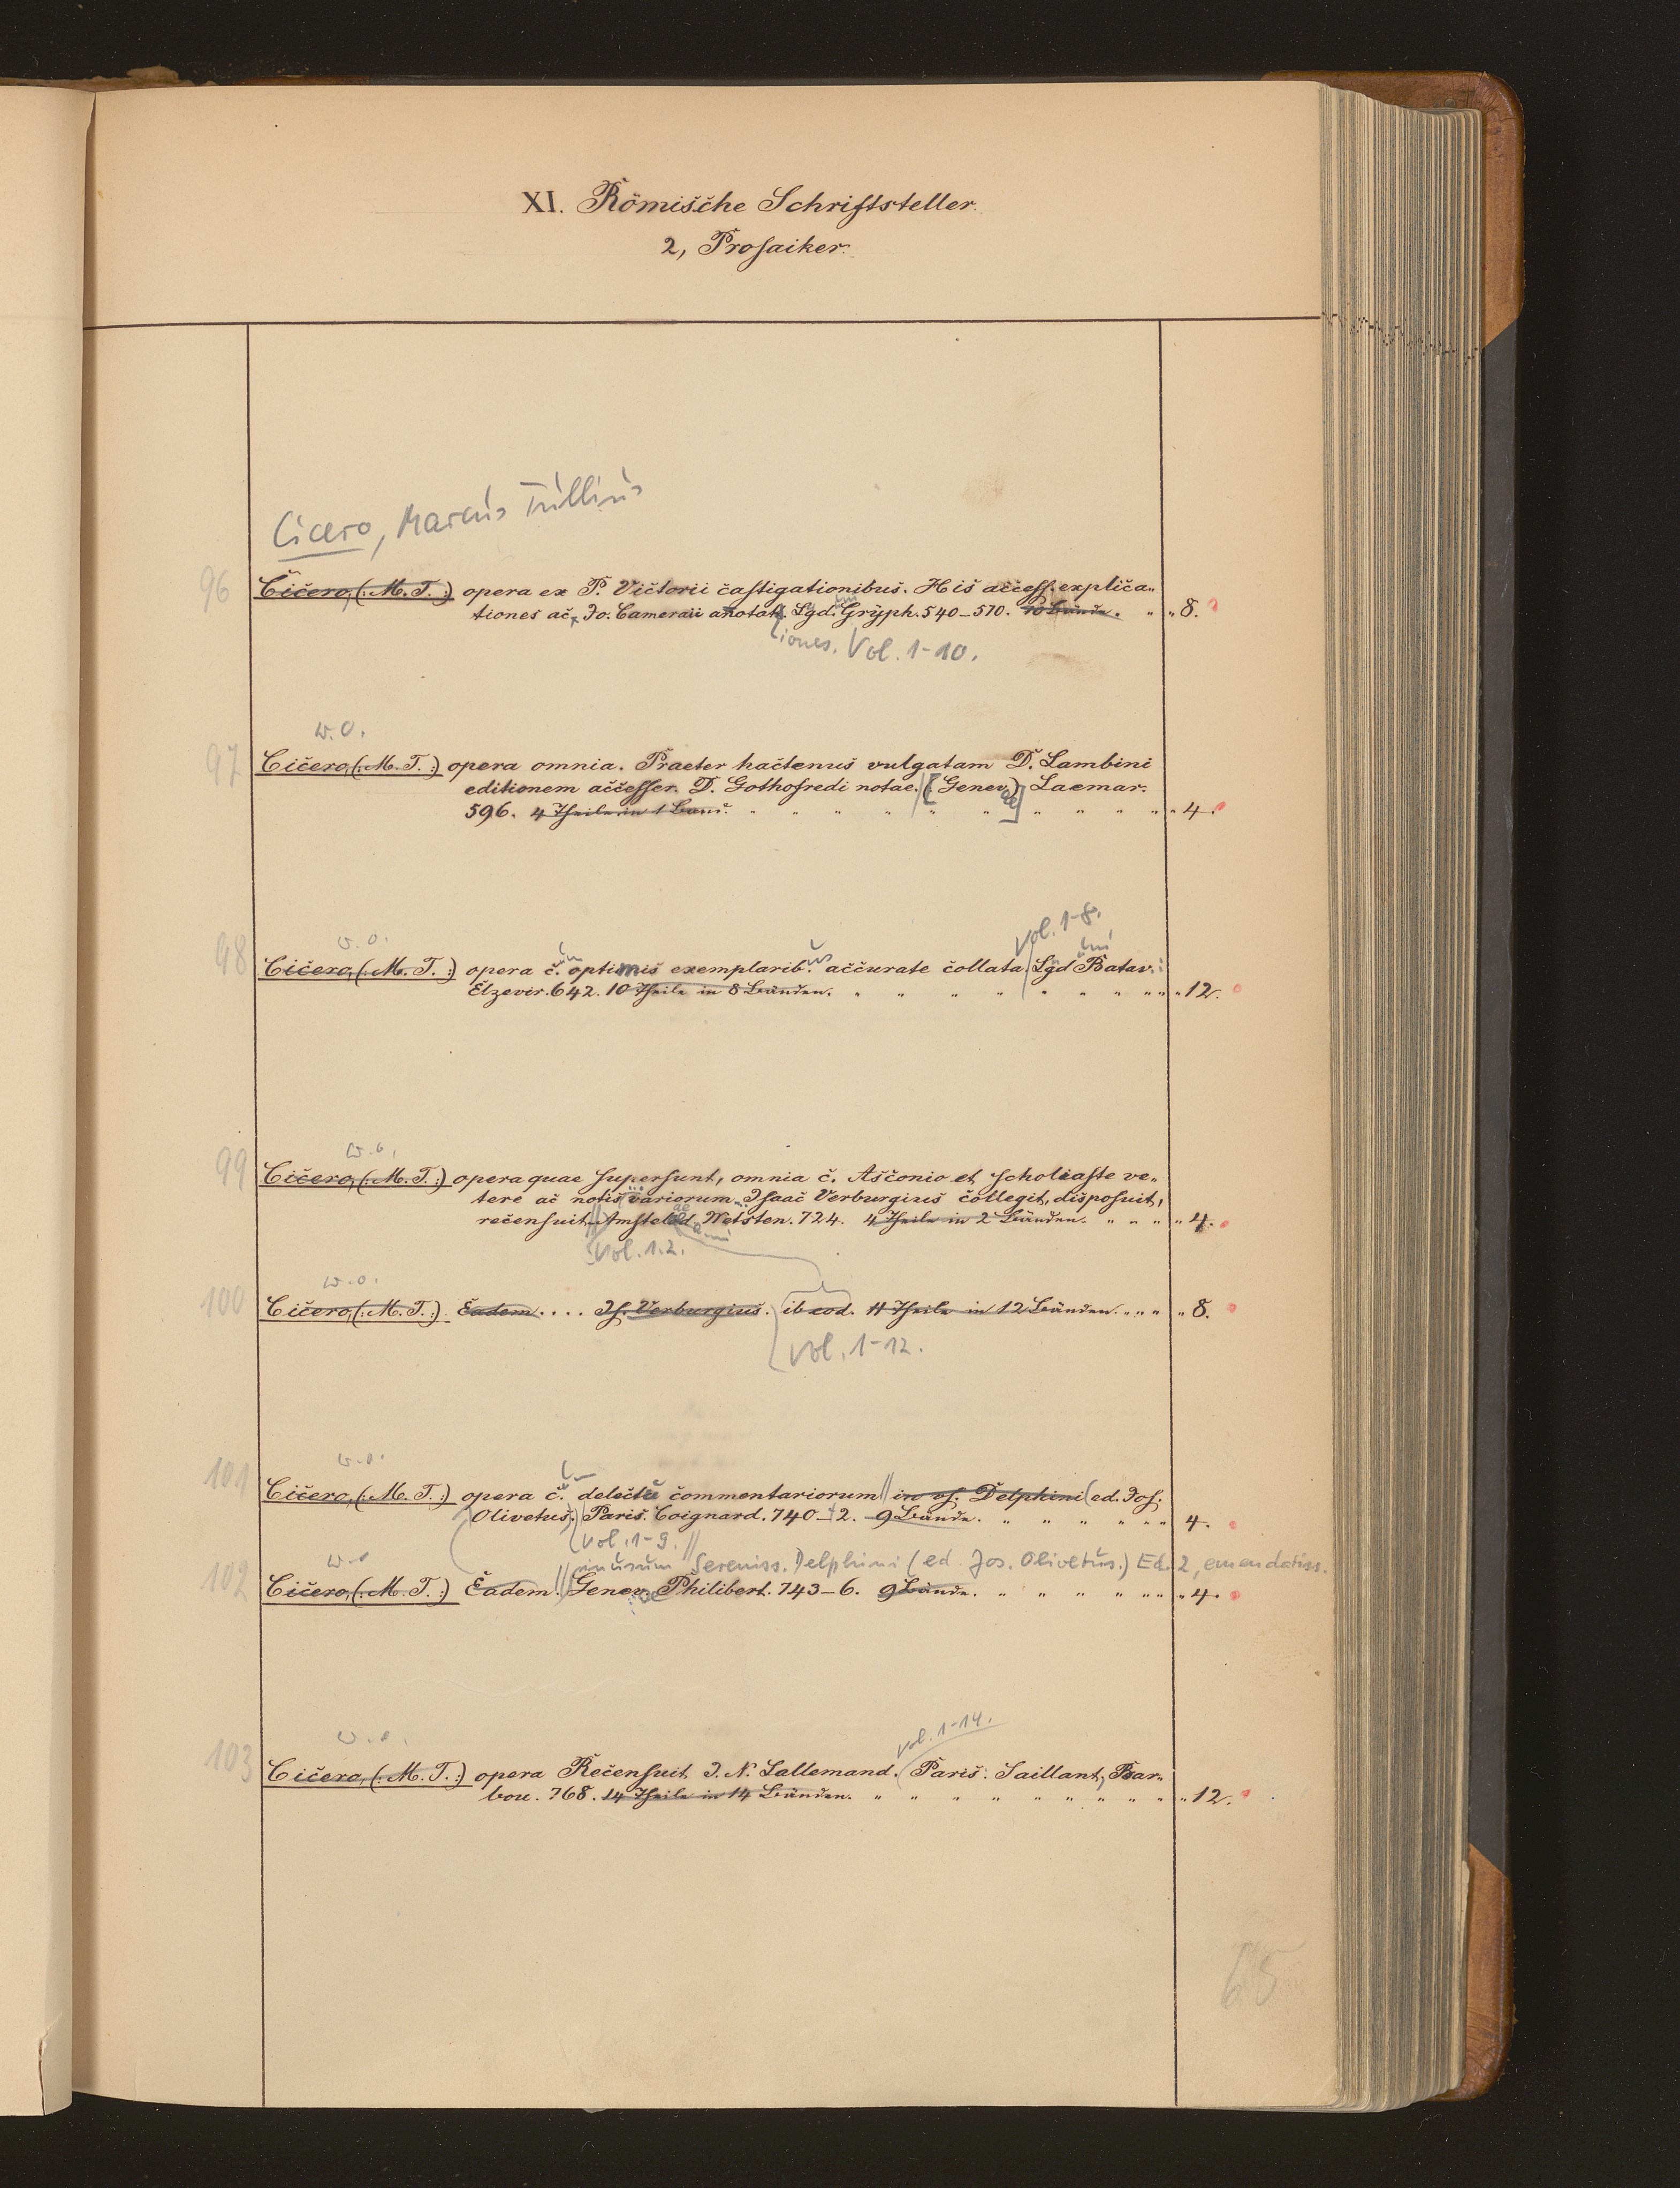 XI. Römische Schriftsteller.
2, Prosaiker.
Cicero, Marcus Tullius
96 Cicero, (: M. T. :) opera ex P. Victorii castigationibus. His access. explica-
tiones ac Jo. Camerarii annotat. Lgd. Gryph. 540–570. 10 Bände. " " 8.
tiones. Vol. 1-10.
w. o.
97 Cicero, (: M. T. :) opera omnia. Praeter hactenus vulgatam D. Lambini
editionem accesser. D. Gothofredi notae. [(Genev.)] Laemar.
596. 4 Theile in 1 Band. " " " " " " " " " " " 4.
w. o. Vol. 1-8.
98 Cicero, (: M. T. :) opera c. optimis exemplarib. accurate collata. Lgd Batav.
Elzevir. 642. 10 Theile in 8 Bänden. " " " " " " " " " " 12.
w. o.
99 Cicero, (: M. T. :) opera quae supersunt, omnia c. Asconio et scholiaste ve-
tere ac notis variorum Isaac Verburgius collegit, disposuit,
recensuit. Amstelod. Wetsten. 724. 4 Theile in 2 Bänden. " " " " " 4.
Vol. 1.2.
w. o.
100 Cicero, (: M. T. :) Eadem . . . . Is. Verburgius. ib eod. 11 Theile in 12 Bänden. " " " " 8.
Vol. 1-12.
w. o.
101 Cicero, (: M. T. :) opera c. delectu commentariorum || in us. Delphini (ed. Jos.
Olivetus.) Paris. Coignard. 740–2. 9 Bände. " " " " " " 4.
Vol. 1-9. ||
w. o. in usum Sereniss. Delphini (ed. Jos. Olivetus.) Ed. 2, emendatiss.
102 Cicero, (: M. T. :) Eadem. || Genev. Philibert. 743–6. 9 Bände. " " " " " " " 4.
w. o. Vol. 1-14.
103 Cicero, (: M. T. :) opera Recensuit J. N. Lallemand. Paris. Saillant, Bar-
bou. 768. 14 Theile in 14 Bänden. " " " " " " " " " 12.
65